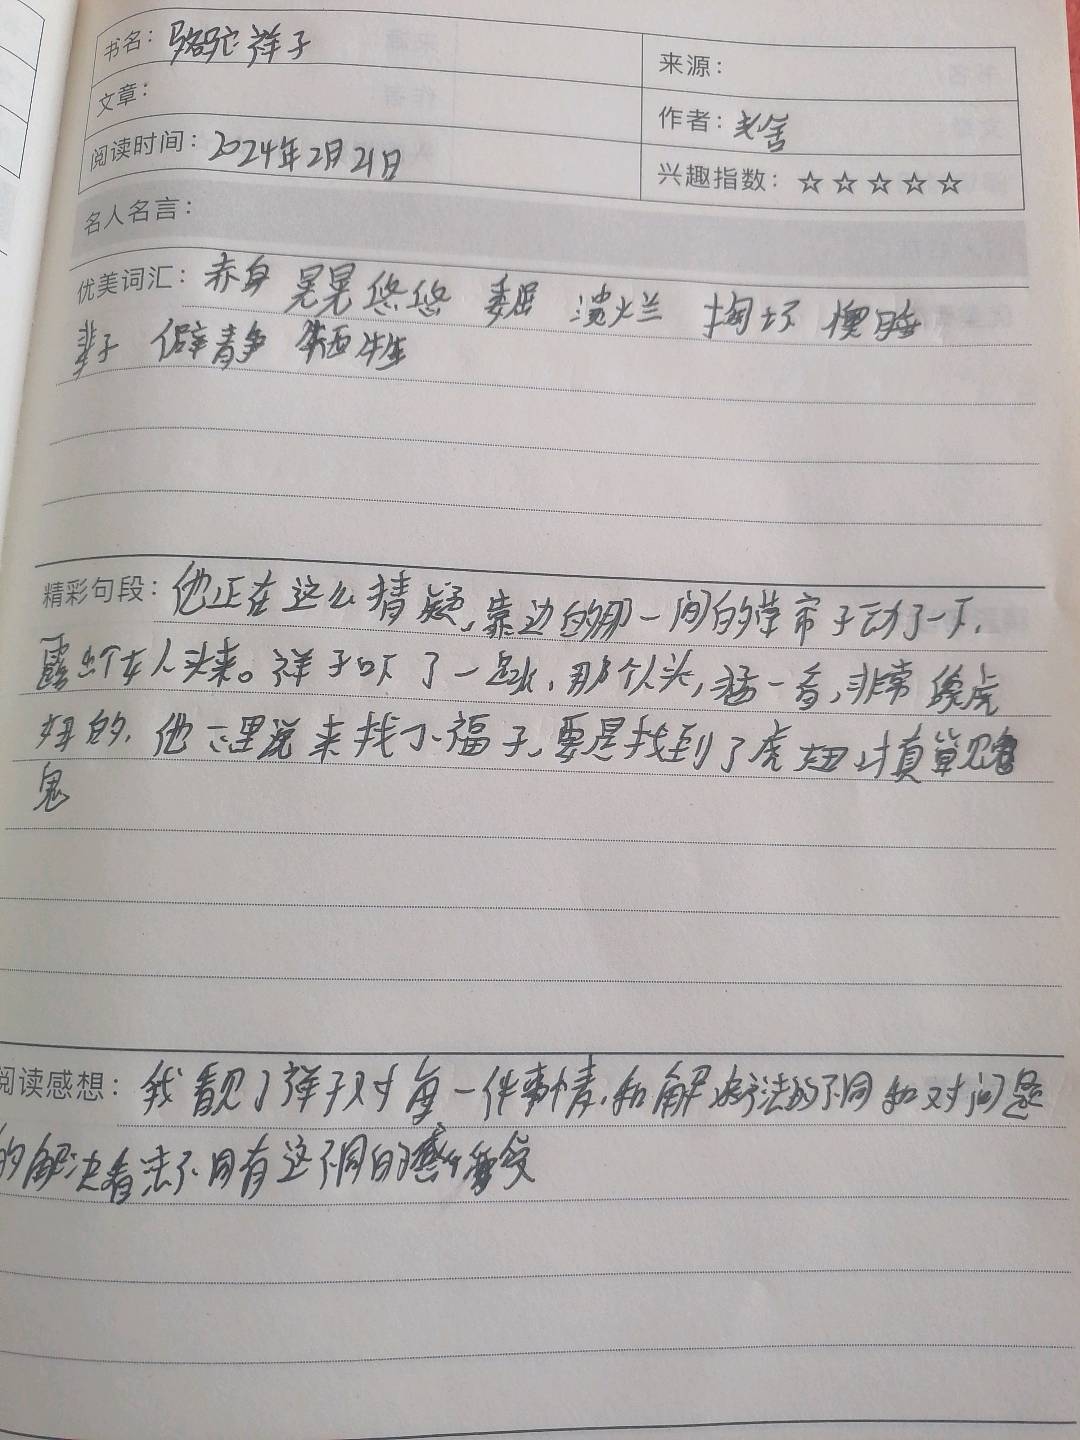 书名：骆驼祥子
来源：
文章：
作者：老舍
阅读时间：2024年2月21日
兴趣指数：☆☆☆☆☆
名人名言：
优美词汇：赤身 晃晃悠悠 委屈 溃烂 掏坏 懊悔
辈子 僻静 牺牲
精彩句段：他正在这么猜疑，靠边的那一间的草帘子动了一下，
露出个女人头来。祥子吓了一跳，那个人头，猛一看，非常像虎
妞的，他心里说来找小福子，要是找到了虎妞，才真算见
鬼
阅读感想：我看见了祥子对每一件事情，和解决方法的不同和对问题
的解决看法不同有这不同的感受